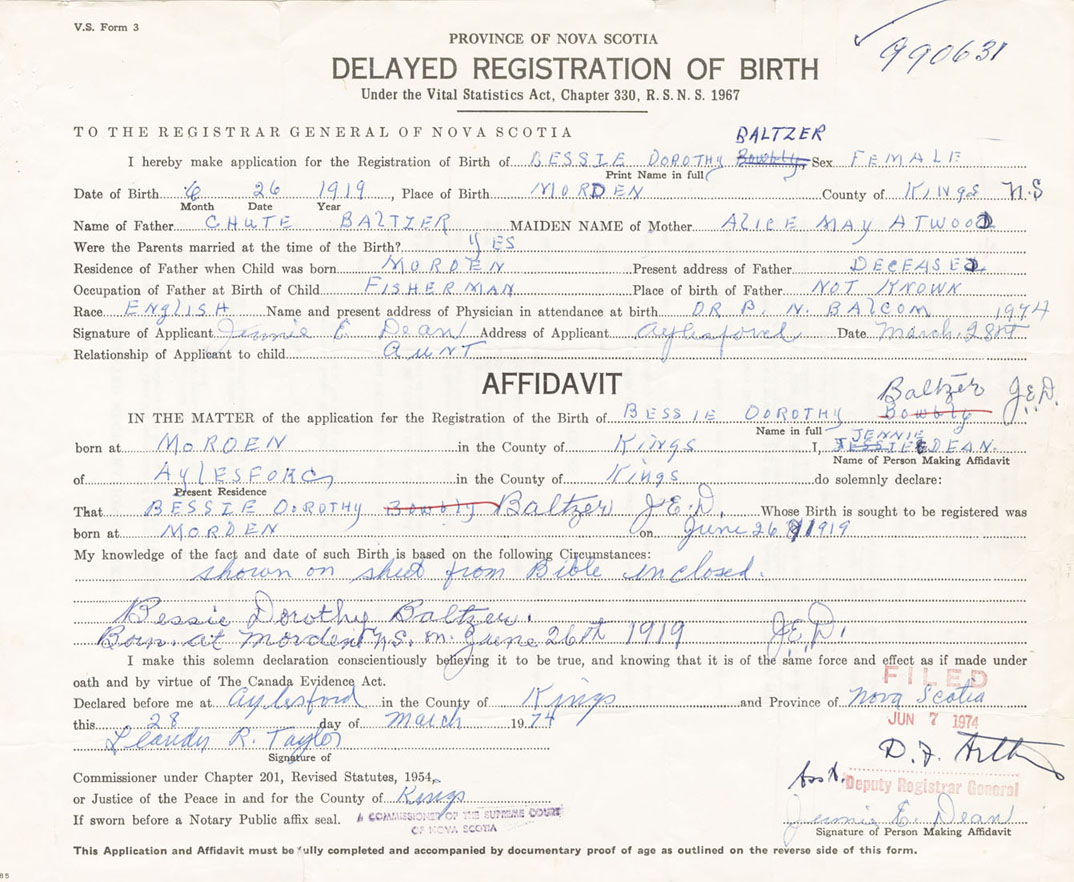 V.S. Form 3
990631
PROVINCE OF NOVA SCOTIA
DELAYED REGISTRATION OF BIRTH
Under the Vital Statistics Act, Chapter 330, R.S.N.S. 1967
TO THE REGISTRAR GENERAL OF NOVA SCOTIA
BALTZER
I hereby make application for the Registration of Birth of BESSIE DOROTHY Bowbly, Sex FEMALE
Print Name in full
Date of Birth 6 26 1919, Place of Birth MORDEN County of KINGS N.S
Month Date Year
Name of Father CHUTE BALTZER MAIDEN NAME of Mother ALICE MAY ATWOOD
Were the Parents married at the time of the Birth? YES
Residence of Father when Child was born MORDEN Present address of Father DECEASED
Occupation of Father at Birth of Child FISHERMAN Place of birth of Father NOT KNOWN
Race ENglISH Name and present address of Physician in attendance at birth DR B. N. BALCOM 1974
Signature of Applicant Jennie E. Dean Address of Applicant Aylesford Date March 28
Relationship of Applicant to child AUNT
AFFIDAVIT
Baltzer J.E.D.
IN THE MATTER of the application for the Registration of the Birth of BESSIE DOROTHY Bowbly
Name in full JENNIE
born at MORDEN in the County of KINGS I, JESSIE DEAN.
Name of Person Making Affidavit
of AYLESFORD in the County of KINGS do solemnly declare:
Present Residence
That BESSIE DOROTHY Bowbly Baltzer J.E.D. Whose Birth is sought to be registered was
born at MORDEN on June 26 1919
My knowledge of the fact and date of such Birth is based on the following Circumstances:
shown on sheet from Bible inclosed.
Bessie Dorothy Baltzer.
Born. at Morden N.S. on. June 26th 1919 J.E.D.
I make this solemn declaration conscientiously believing it to be true, and knowing that it is of the same force and effect as if made under
oath and by virtue of The Canada Evidence Act.
FILED
Declared before me at Aylesford in the County of Kings and Province of Nova Scotia
this 28 day of March 1974
JUN 7 1974
R. Taylor
Signature of
D. F.
Commissioner under Chapter 201, Revised Statutes, 1954,
Ass't. Deputy Registrar General
or Justice of the Peace in and for the County of Kings
If sworn before a Notary Public affix seal.
A COMMISSIONER OF THE SUPREME COURT
OF NOVA SCOTIA
Jennie E. Dean
Signature of Person Making Affidavit
This Application and Affidavit must be fully completed and accompanied by documentary proof of age as outlined on the reverse side of this form.